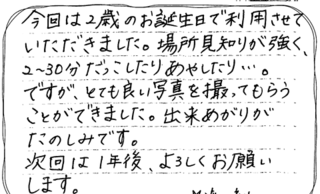 今回は2歳のお誕生日で利用させて
いただきました。場所見知りが強く、
2~30分だっこしたりあやしたり…。
ですが、とても良い写真を撮ってもらう
ことができました。出来あがりが
たのしみです。
次回は1年後、よろしくお願い
します。